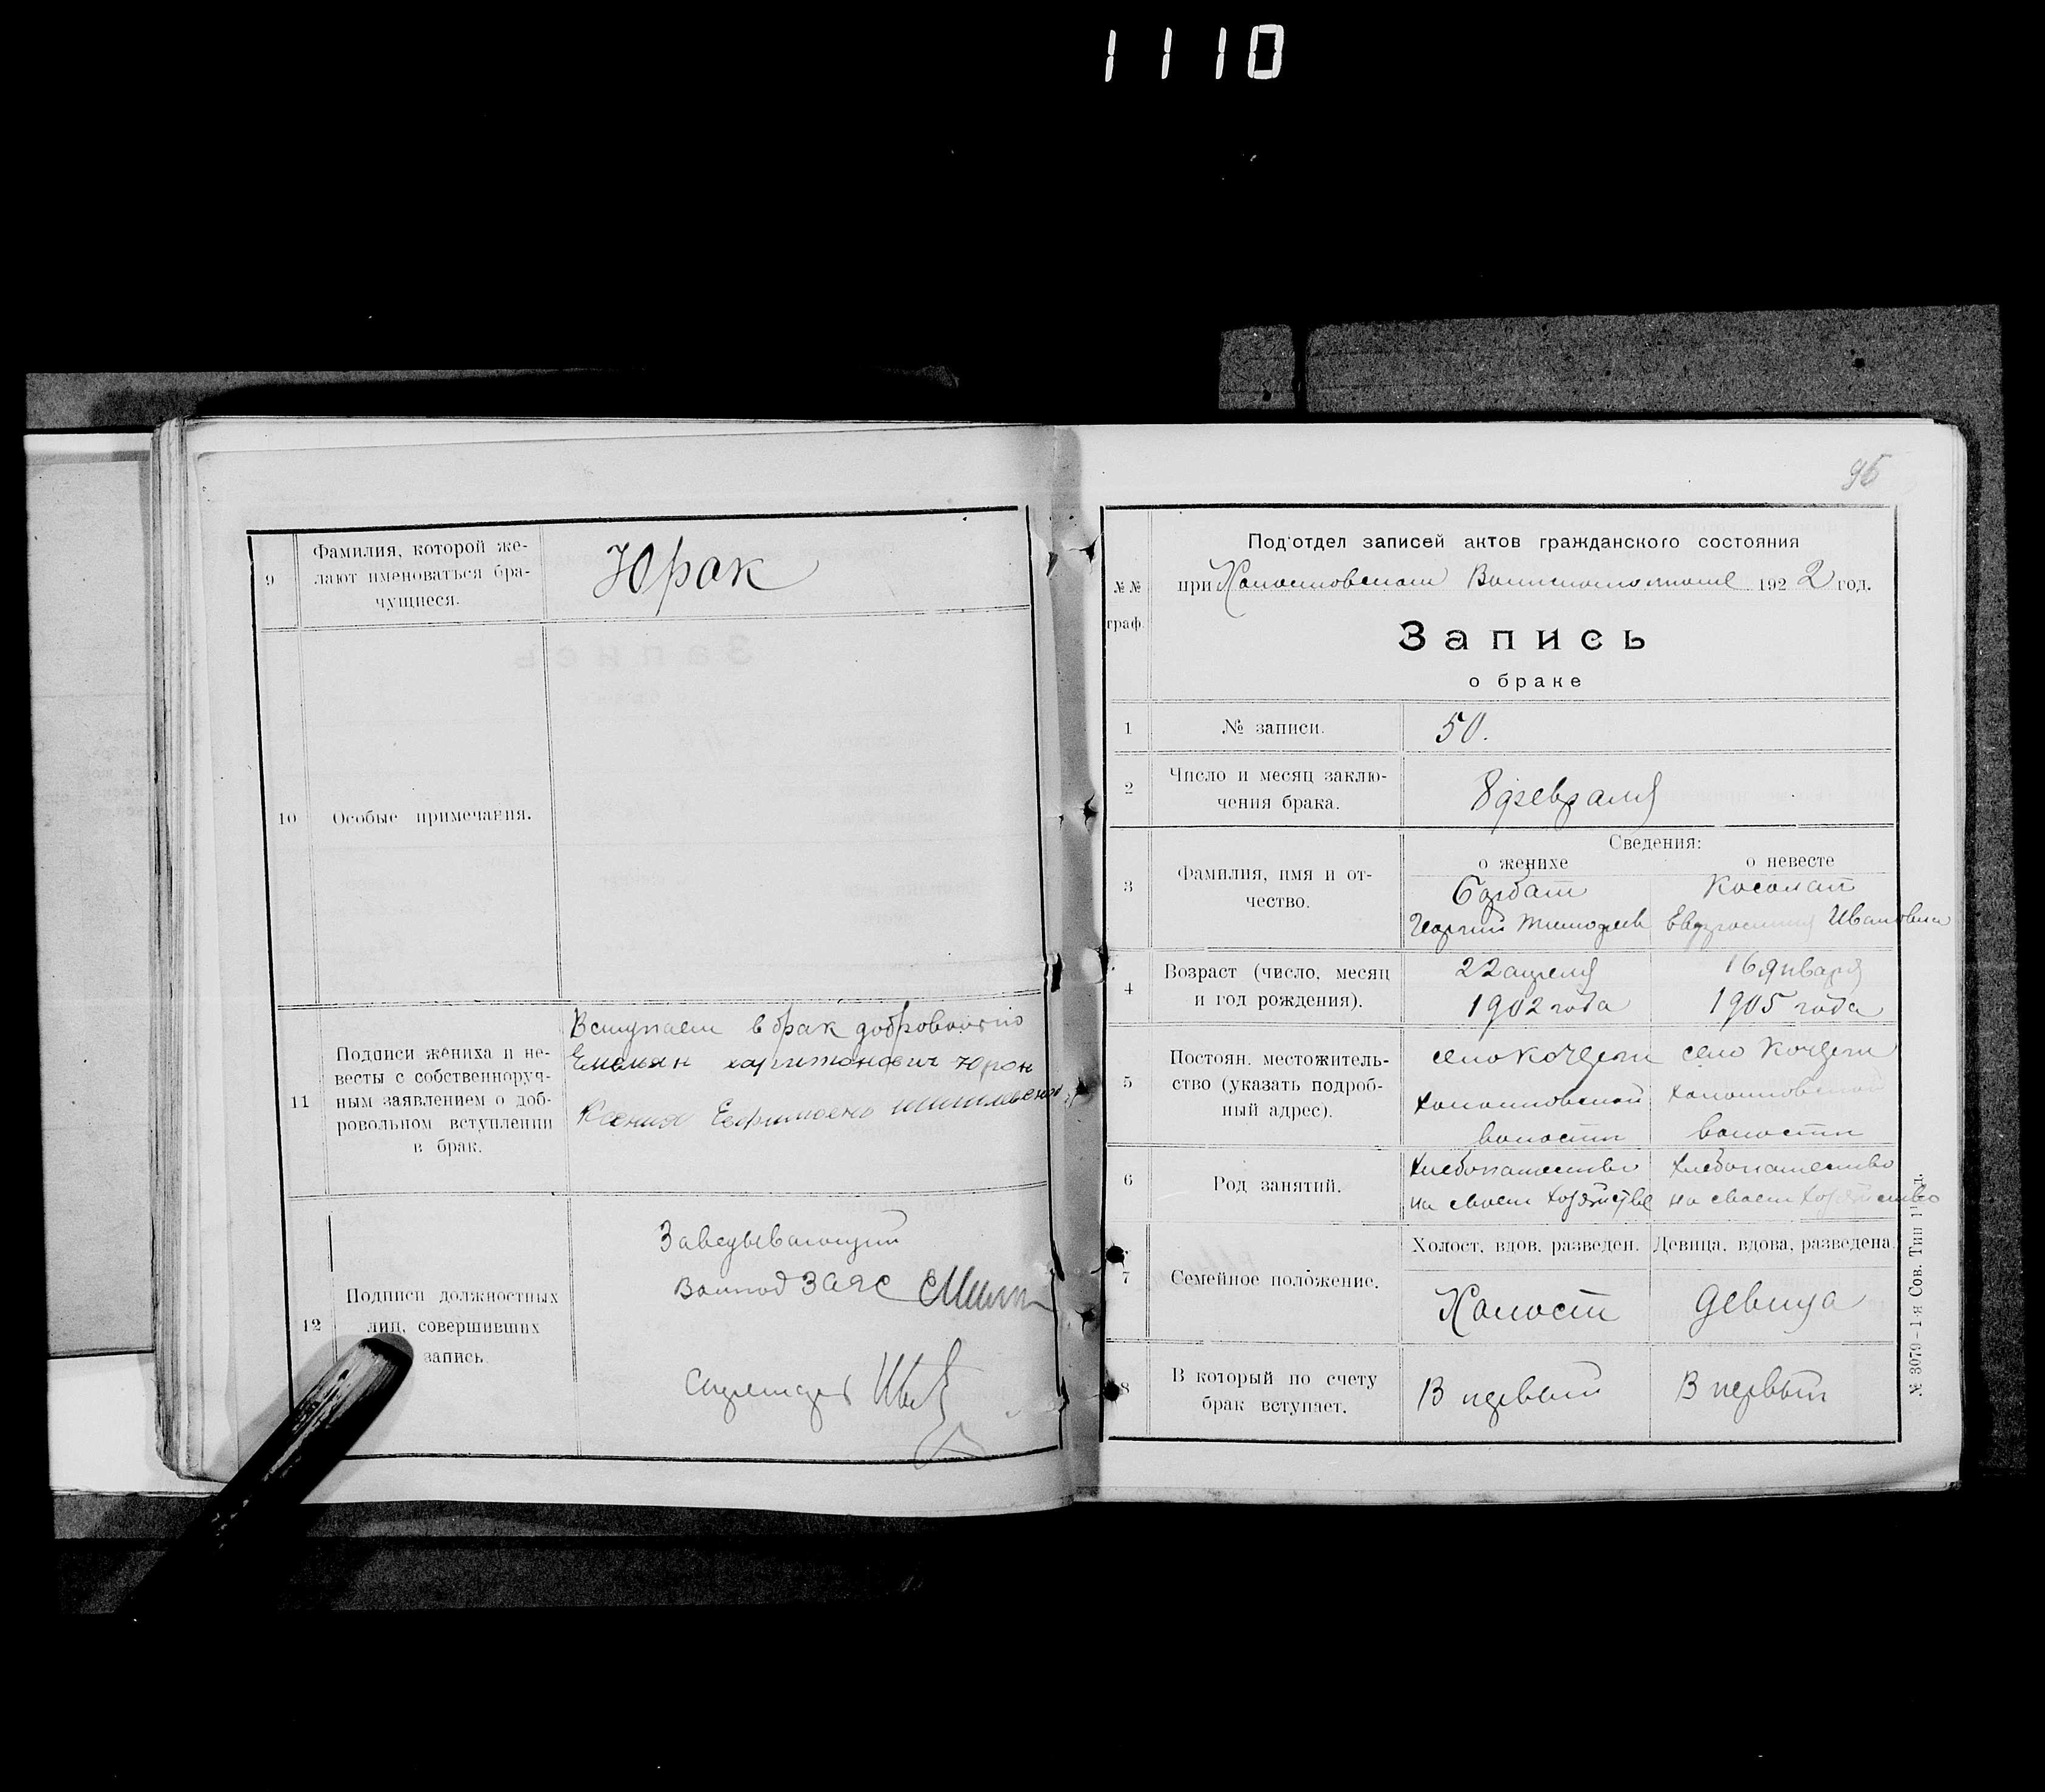 1110
9
Фамилия, которой же-
лают именоваться бра-
чущиеся.
Юрак
10
Особые примечания.
11
Подписи жениха и не-
весты с собственноруч-
ным заявлением о доб-
ровольном вступлении
в брак.
Вступаем в брак добровольно
Емельян харитонович Юрак
Ксения
12
Подписи должностных
лиц, совершивших
запись.
Заведывающий
Волпод ЗАГС
Секретарь
95
№№
граф.
Под'отдел записей актов гражданского состояния
при Волисполкоме 1922 год.
Запись
о браке
1
№ записи.
50.
2
Число и месяц заклю-
чения брака.
8 февраля
3
Фамилия, имя и от-
чество.
Сведения:
о женихе
о невесте
Горбат
Косолап
Георгий Тимофеев
Евфросиния Ивановна
4
Возраст (число, месяц
и год рождения).
22 апреля
1902 года
16 января
1905 года
5
Постоян. местожитель-
ство (указать подроб-
ный адрес).
село
волости
село
волости
6
Род занятий.
Хлебопашество
на своем хозяйстве
Хлебопашество
на своем хозяйство
7
Семейное положение.
Холост, вдов, разведен.
Девица, вдова, разведена.
Холост
девица
8
В который по счету
брак вступает.
В первый
В первый
№ 3079—1-я Сов. Тип